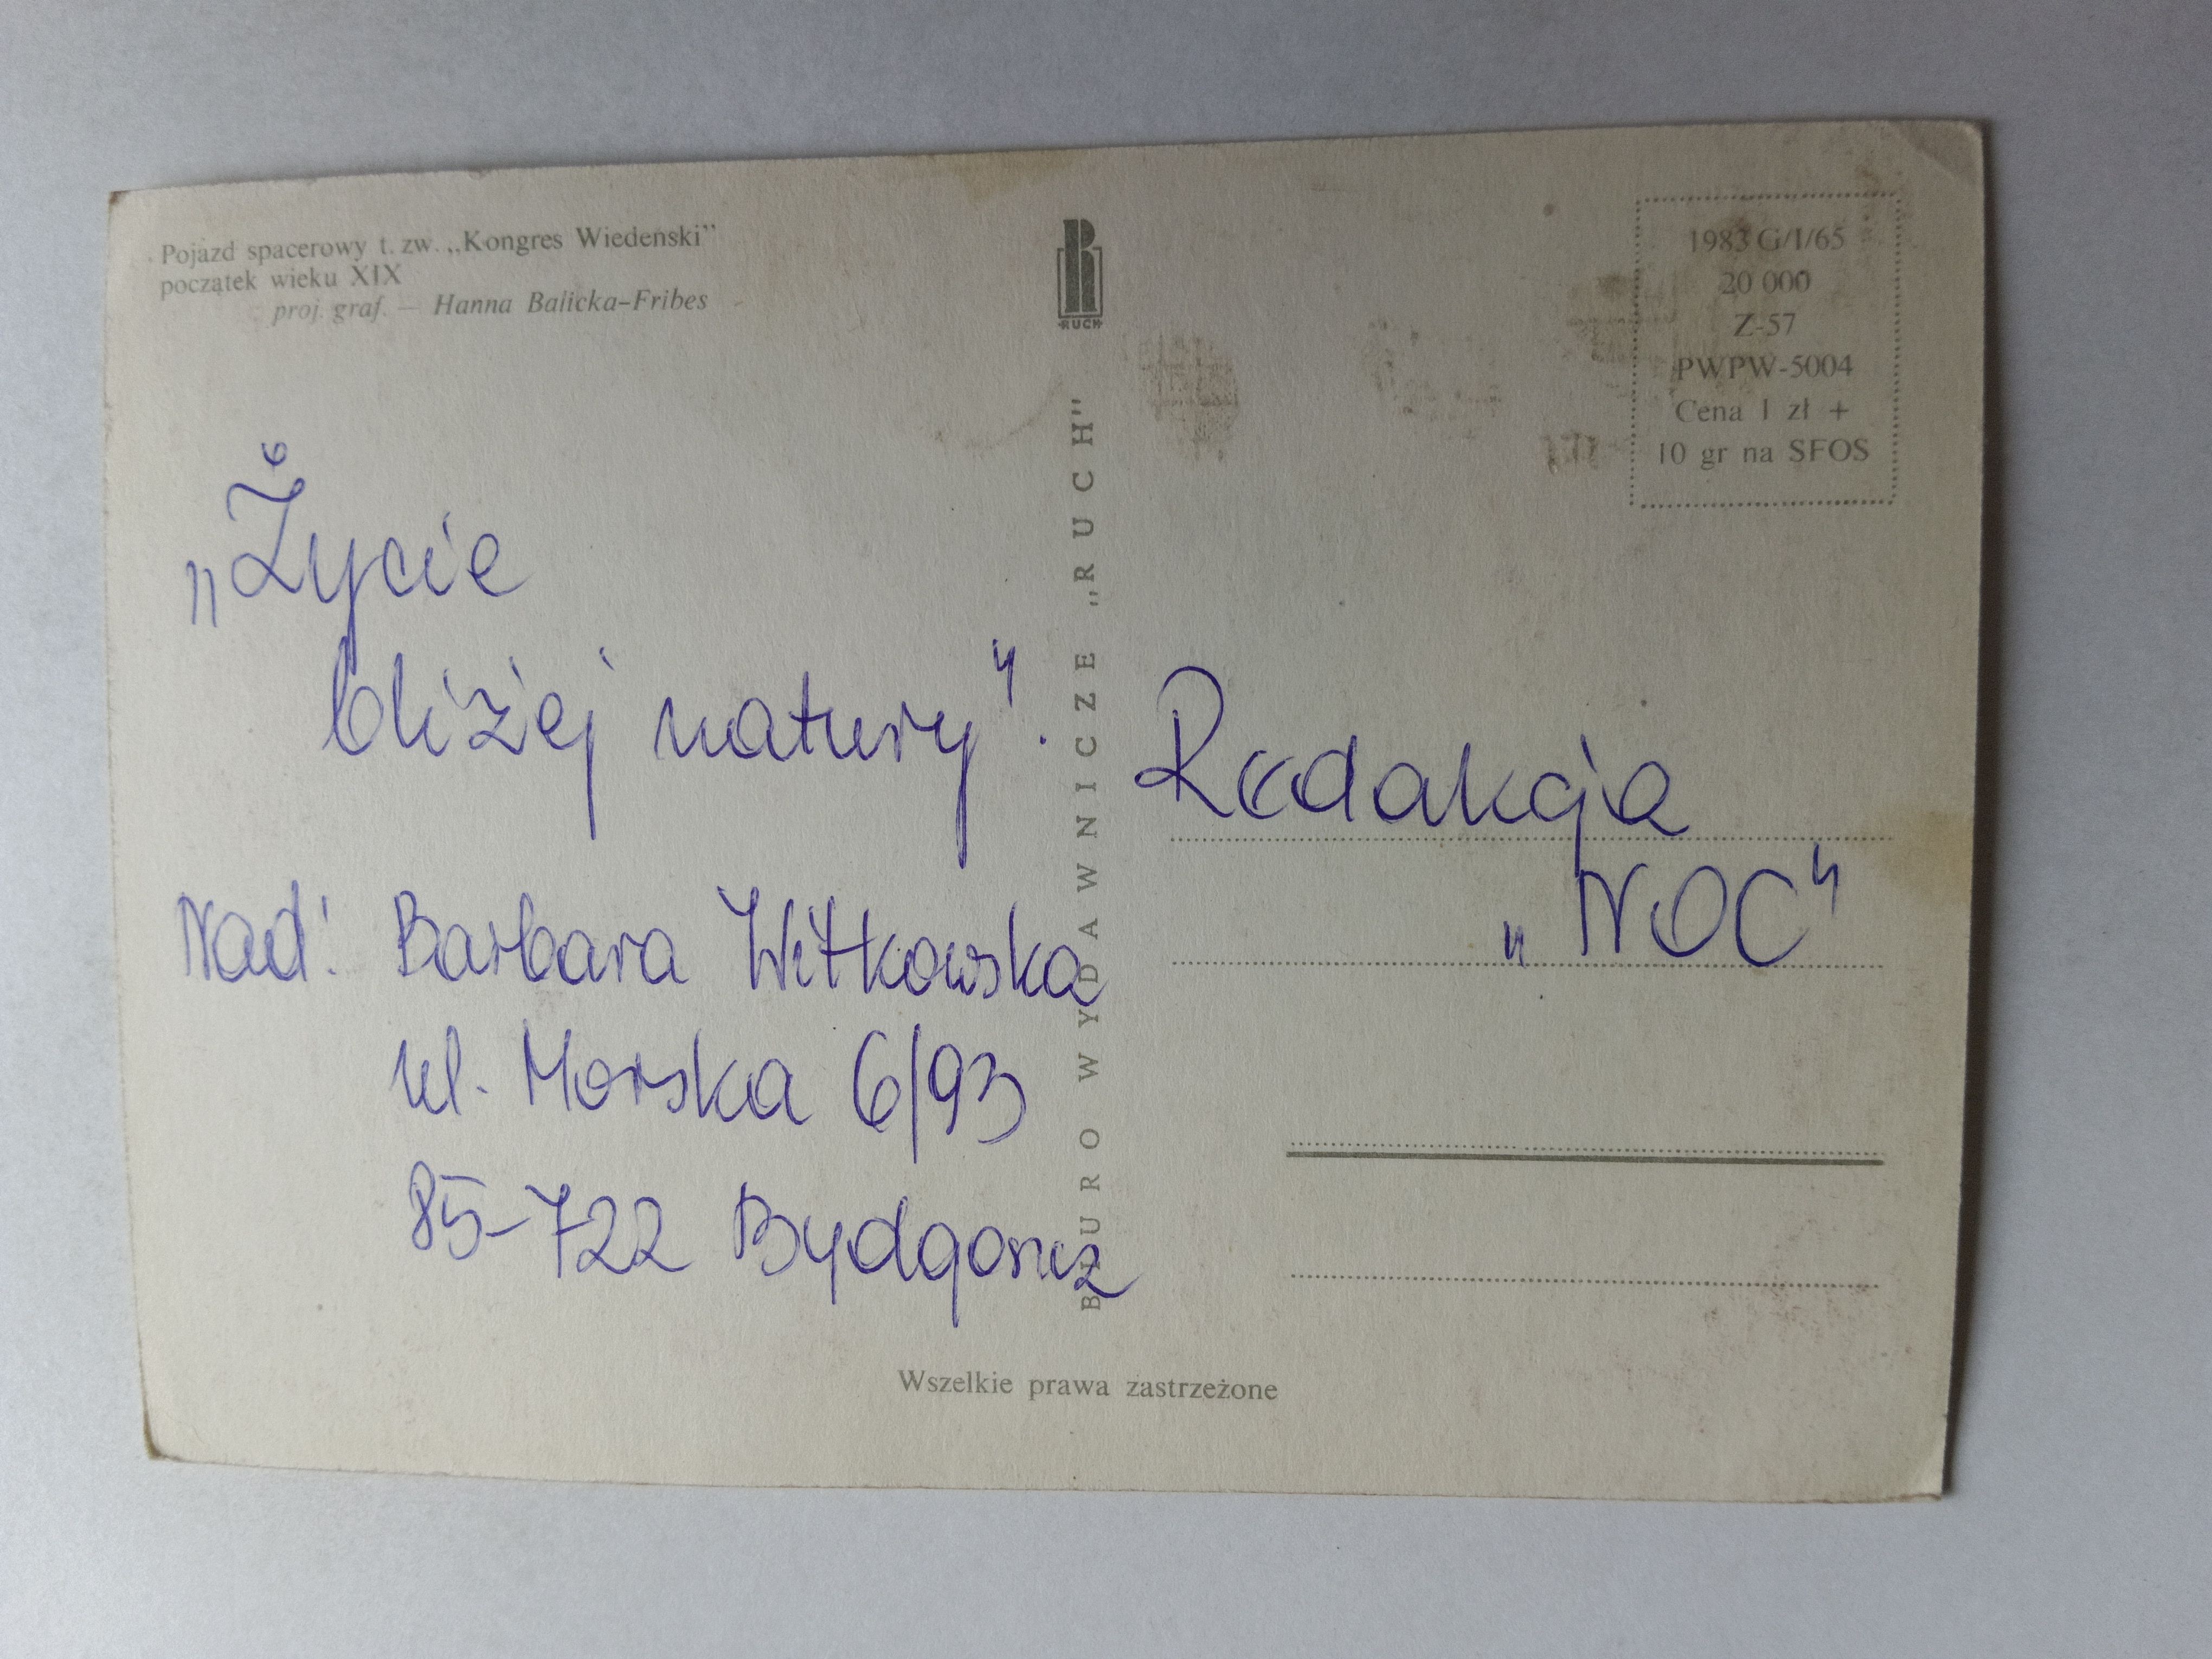 Pojazd spacerowy t. zw. „Kongres Wiedeński”
początek wieku XIX
proj. graf. — Hanna Balicka-Fribes
„Życie
bliżej natury”.
Nad: Barbara Witkowska
ul. Morska 6/93
85-722 Bydgoszcz
RUCH
BIURO WYDAWNICZE „RUCH”
1983 G/I/65
20 000
Z-57
PWPW-5004
Cena 1 zł +
10 gr na SFOS
Redakcja
„NOC”
Wszelkie prawa zastrzeżone